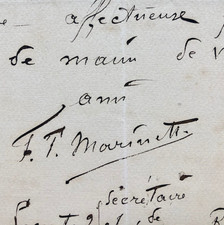 affectueuse
de main de v
ami
F. T. Marinetti
secrétaire
de